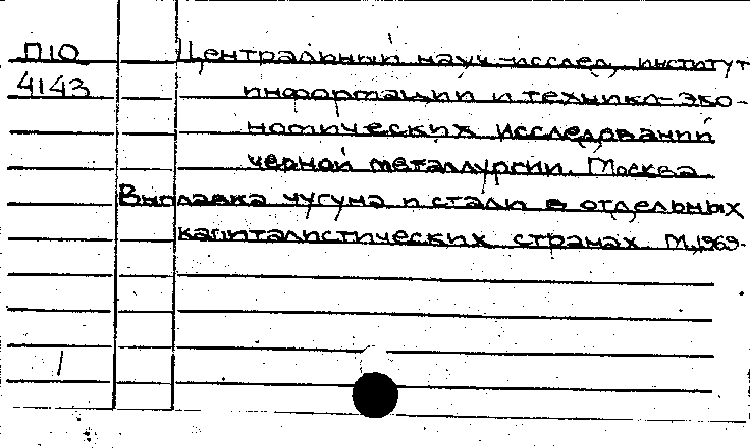 П10 Центральный науч.-исслед. институт
4143 информации и технико-эко-
номических исследований
черной металлургии. Москва
Выплавка чугуна и стали в отдельных
капиталистических странах. М., 1969-